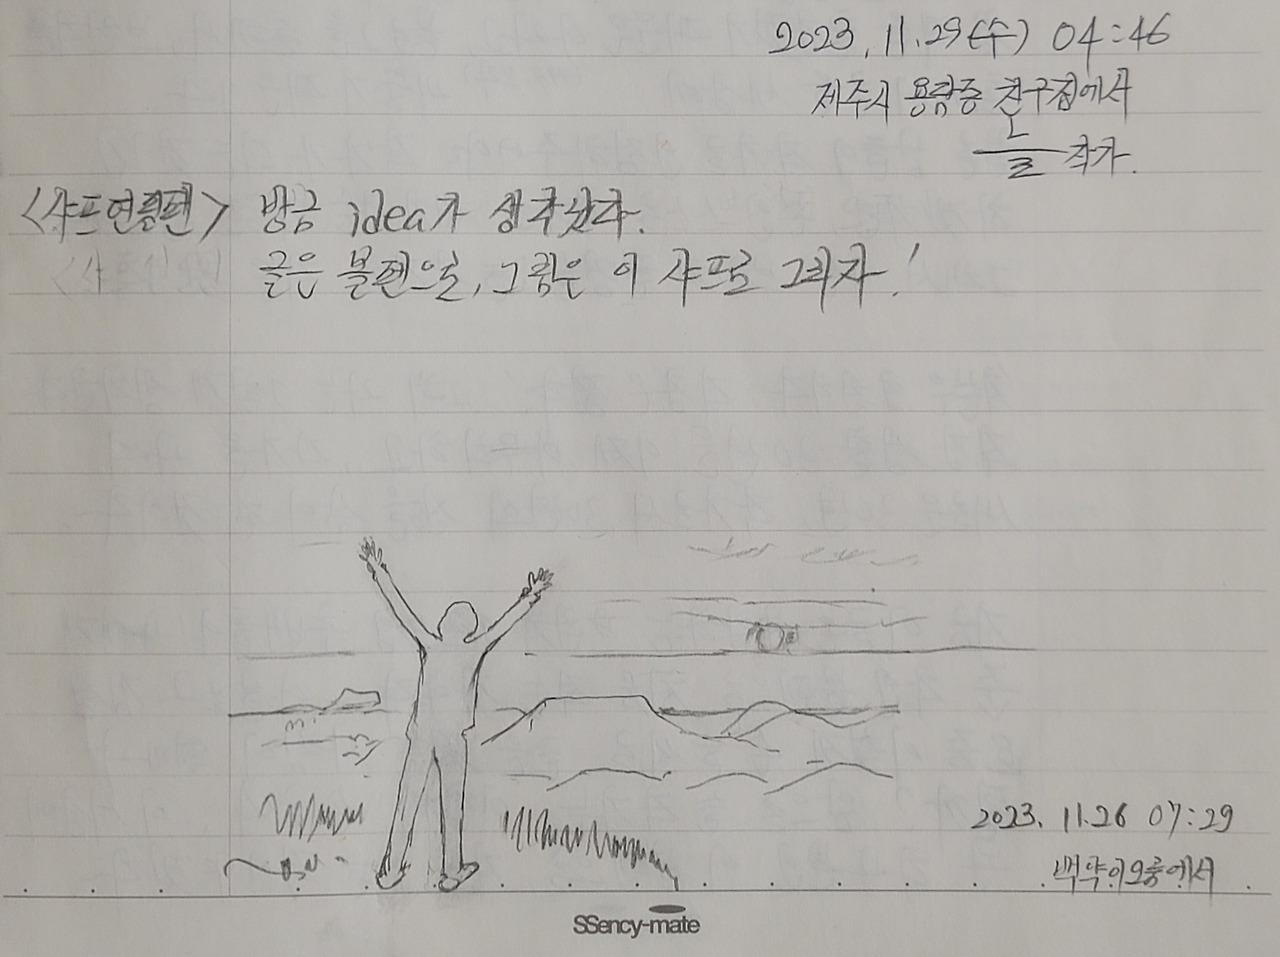 2023. 11. 29(수) 04:46
제주시 용담동 친구집에서
작가.
<샤프연필편> 방금 idea가 생각났다.
글은 볼펜으로, 그림은 이 샤프로 그리자!
2023. 11.26 07:29
백약이오름에서
SSency-mate